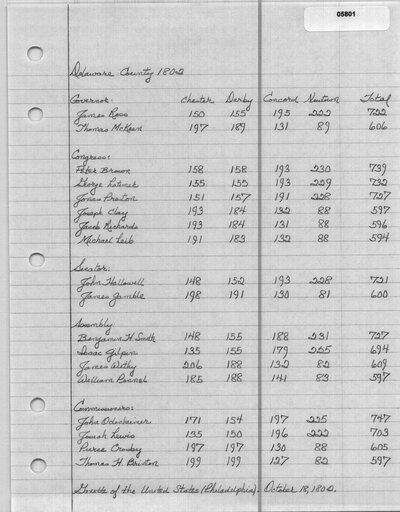 05801
Delaware County 1802
Governor: Chester Derby Concord Newtown Total
James Ross 150 155 195 222 722
Thomas McKean 197 189 131 89 606
Congress:
Peter Brown 158 158 193 230 739
George Latimer 155 155 193 229 732
Jonas Preston 151 157 191 228 727
Joseph Clay 193 184 132 88 597
Jacob Richards 193 184 131 88 596
Michael Leib 191 183 132 88 594
Senator:
John Hallowell 148 152 193 228 721
James Gamble 198 191 130 81 600
Assembly:
Benjamin H. Smith 148 155 188 231 727
Isaac Gilpin 135 155 179 225 694
James Withy 206 188 132 83 609
William Pennel 185 188 141 83 597
Commissioners:
John Odenheimer 171 154 197 225 747
Josiah Lewis 135 150 196 222 703
Pierce Crosby 197 197 130 88 605
Thomas H. Brinton 199 199 127 82 597
Gazette of the United States (Philadelphia). October 18, 1802.